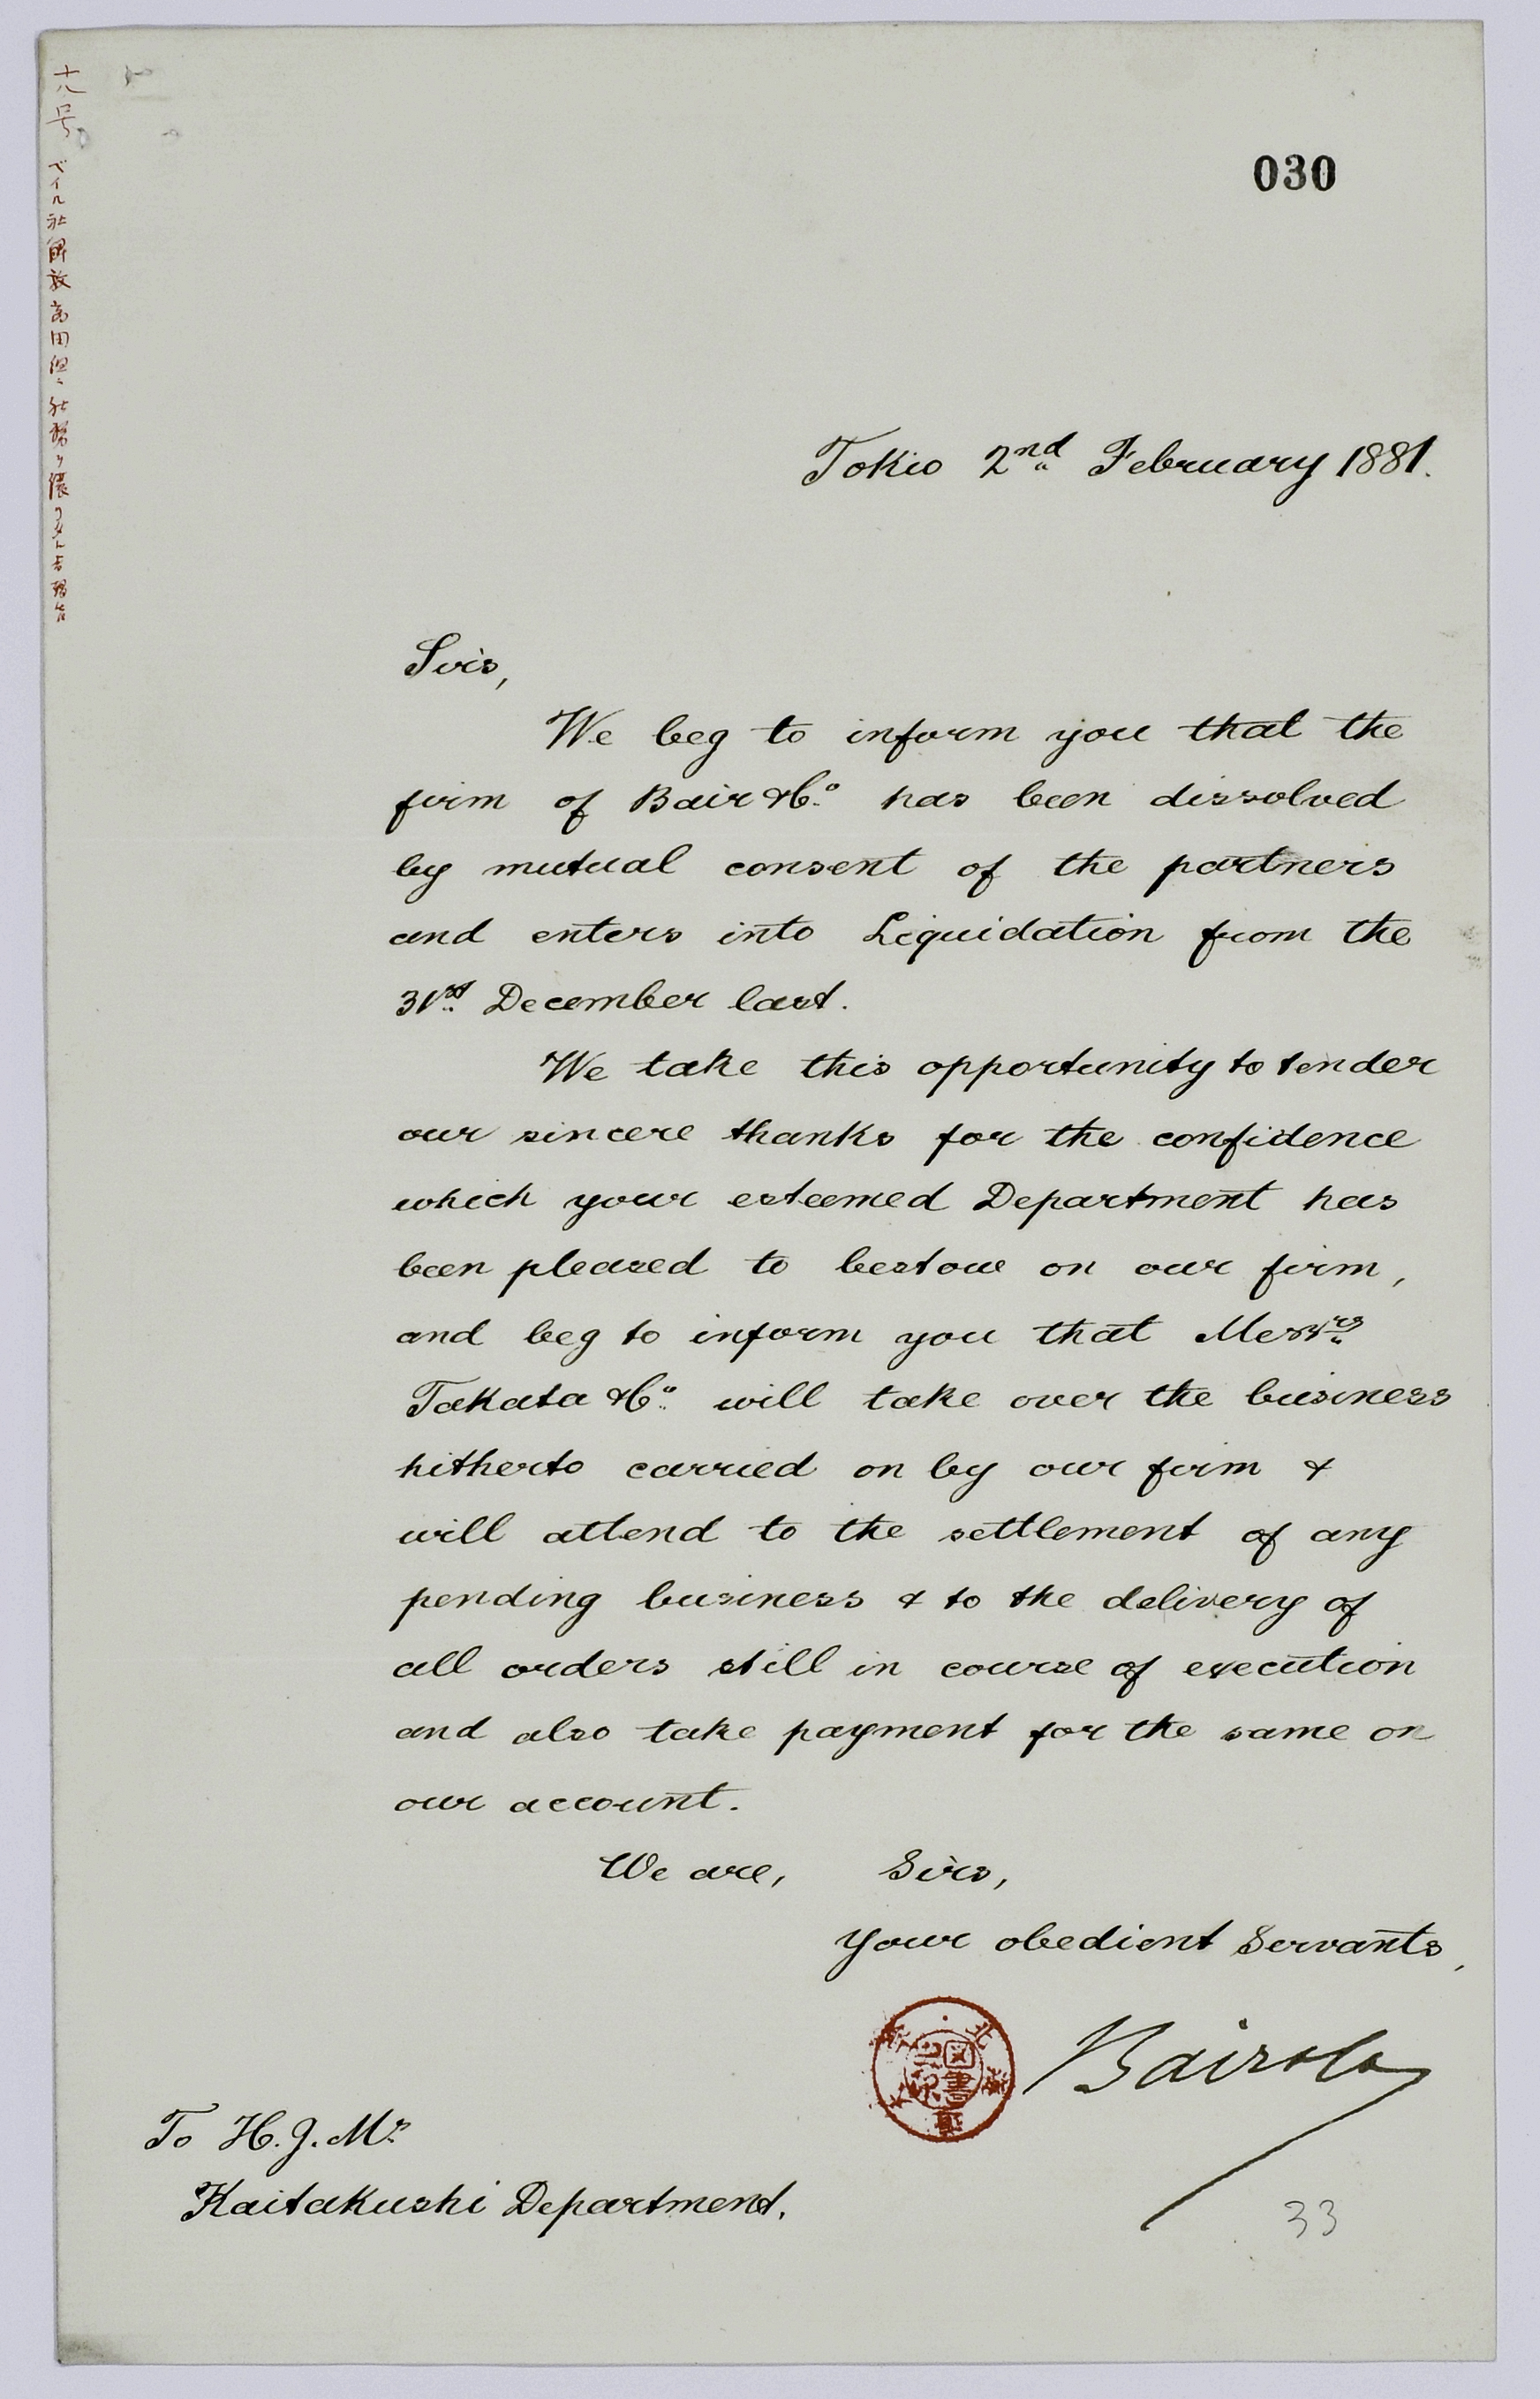 十八号
ベイル社解放高田組ニ社務ヲ譲
030
Tokio 2nd February 1881.
Sirs,
We beg to inform you that the
firm of Bair & Co. has been dissolved
by mutual consent of the partners
and enters into Liquidation from the
31st December last.
We take this opportunity to tender
our sincere thanks for the confidence
which your esteemed Department has
been pleased to bestow on our firm,
and beg to inform you that Messrs
Takata & Co. will take over the business
hitherto carried on by our firm &
will attend to the settlement of any
pending business & to the delivery of
all orders still in course of execution
and also take payment for the same on
our account.
We are, Sirs,
Your obedient Servants,
Bair & Co
図書
To H.J.M's
Kaitakushi Department.
33